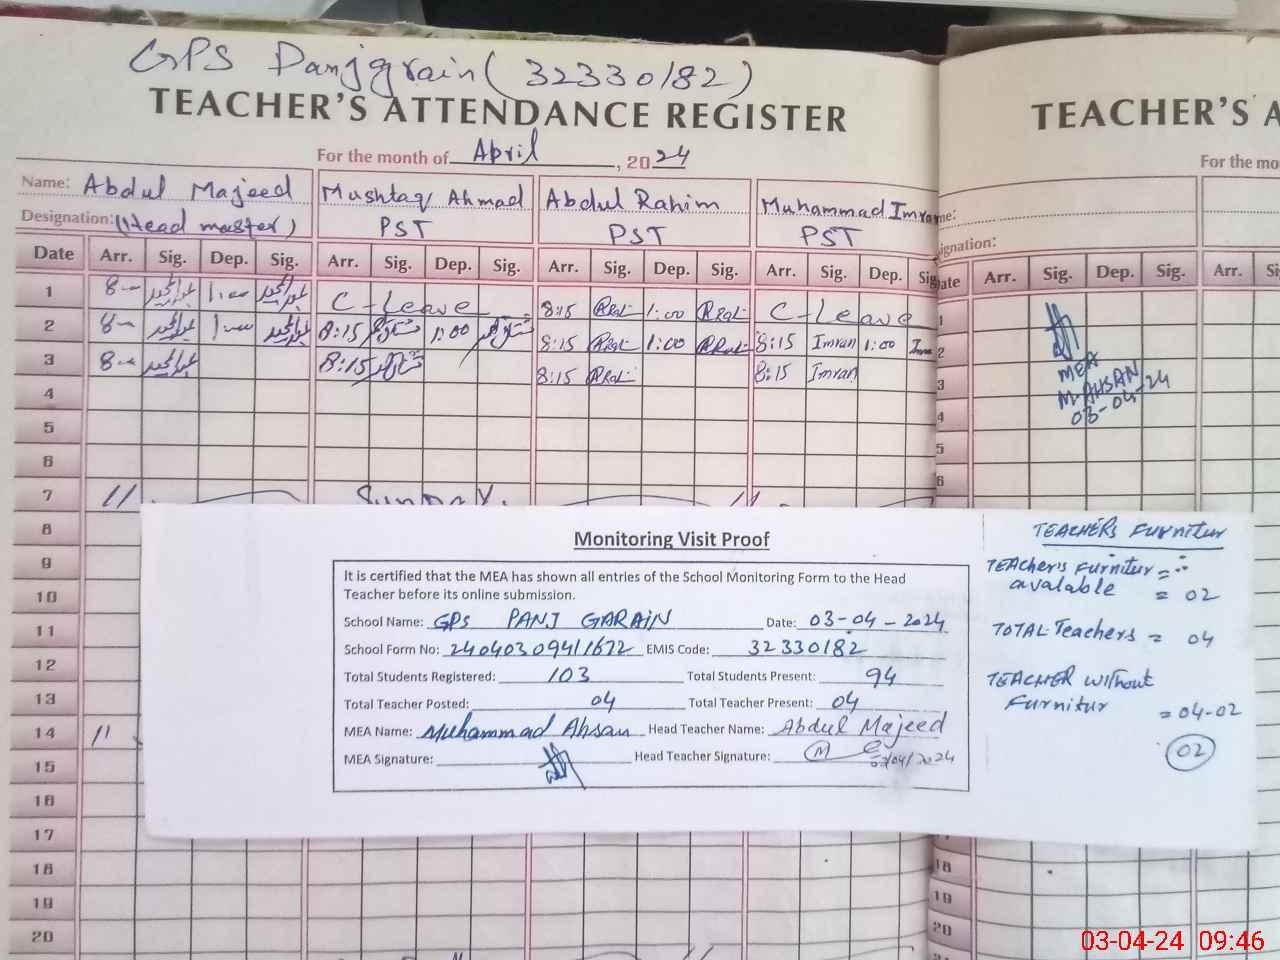 GPS Panjgrain (32330182)
TEACHER'S ATTENDANCE REGISTER
For the month of April, 2024
Name: Abdul Majeed Mushtaq Ahmad Abdul Rahim Muhammad Imran
Designation: (Head master) PST PST PST
Date Arr. Sig. Dep. Sig. Arr. Sig. Dep. Sig. Arr. Sig. Dep. Sig. Arr. Sig. Dep. Sig
1 8- 1:00 C-Leave 8:15 1:00 C-Leave
2 8- 1:00 8:15 1:00 8:15 1:00 8:15 Imran 1:00
3 8- 8:15 8:15 8:15 Imran
4
5
6
7 11 Sunday.
8
9
10
11
12
13
14 11
15
16
17
18
19
20
TEACHER'S A
For the mo
me:
signation:
ate Arr. Sig. Dep. Sig. Arr. Si
1
2
3
4
5
6
MEA
M. AHSAN
03-04-24
18
19
20
Monitoring Visit Proof
It is certified that the MEA has shown all entries of the School Monitoring Form to the Head
Teacher before its online submission.
School Name: GPS PANJ GARAIN Date: 03-04-2024
School Form No: 24040309411672 EMIS Code: 32330182
Total Students Registered: 103 Total Students Present: 94
Total Teacher Posted: 04 Total Teacher Present: 04
MEA Name: Muhammad Ahsan Head Teacher Name: Abdul Majeed
MEA Signature: Head Teacher Signature: 03/04/2024
TEACHERS FURNITUR
TEACHER'S FURNITUR
avalable = 02
TOTAL Teachers = 04
TEACHER without
Furnitur = 04-02
02
03-04-24 09:46